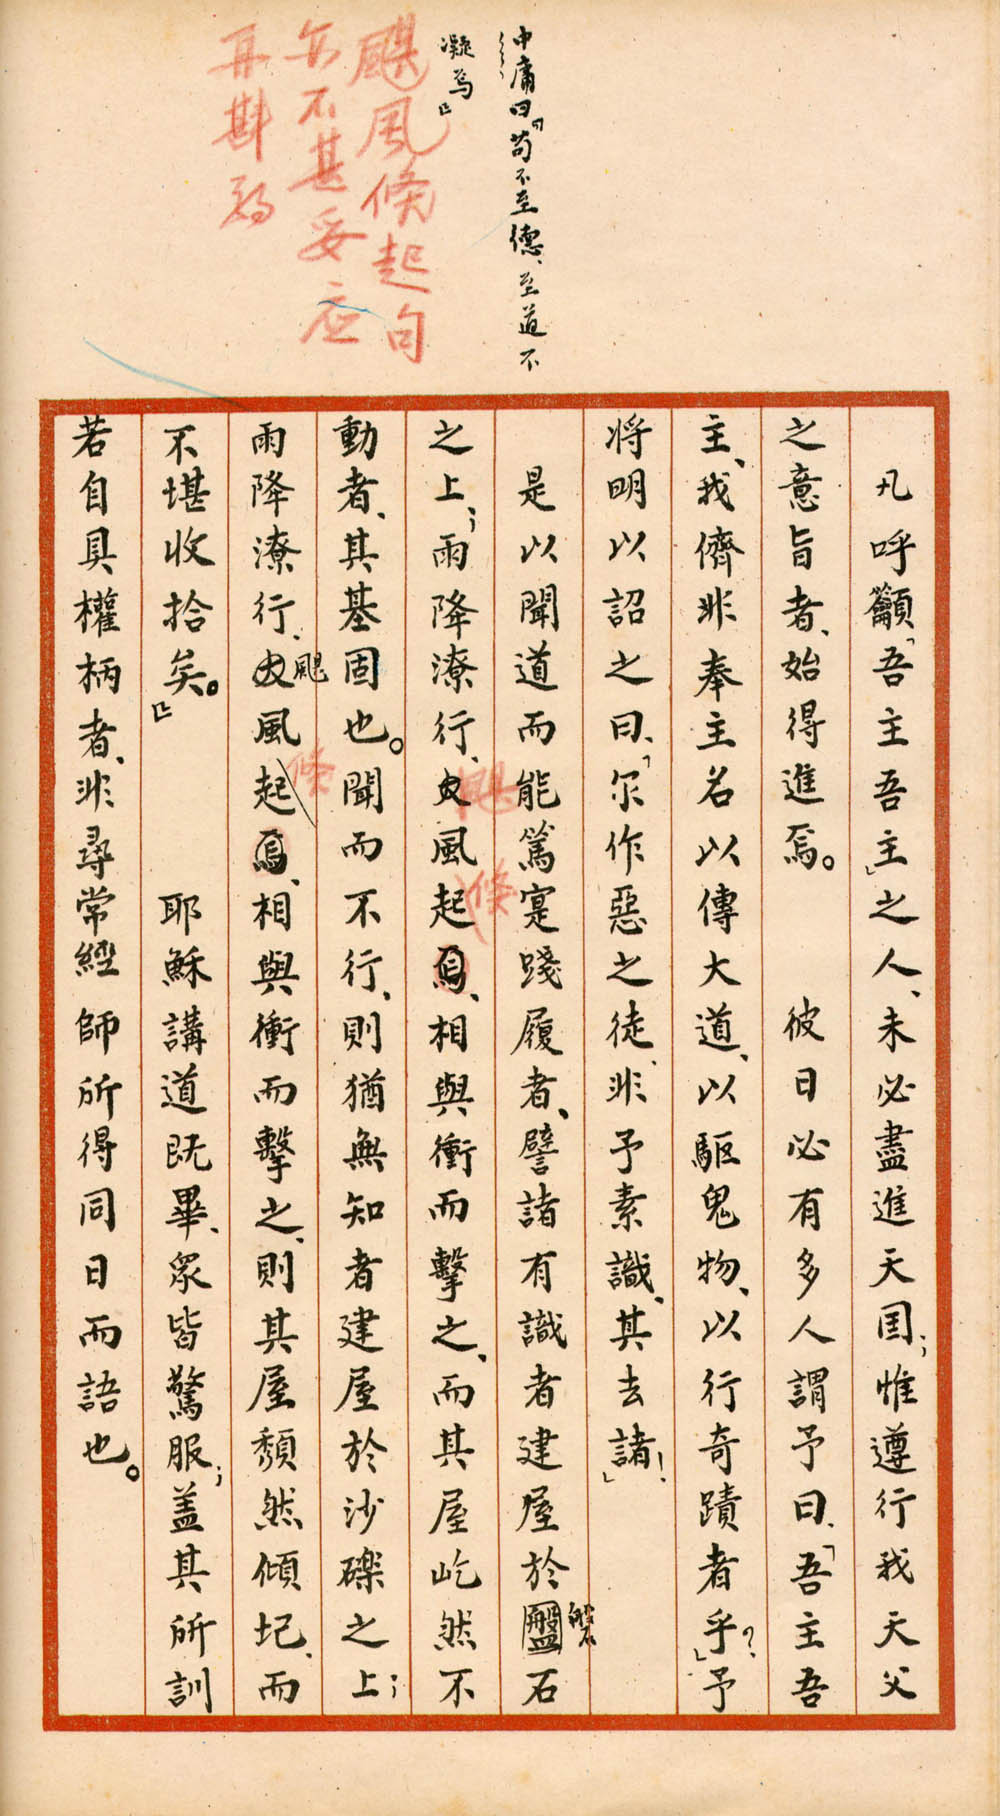 中庸曰「苟不至德、至道不
凝焉」
颶風倏起句
亦不甚妥应
再斟酌
凡呼籲「吾主吾主」之人、未必盡進天国；惟遵行我天父
之意旨者、始得進焉。 彼日必有多人謂予曰、「吾主吾
主、我儕非奉主名以傳大道、以驅鬼物、以行奇蹟者乎？」予
將明以詔之曰、「尔作惡之徒、非予素識、其去諸！」
是以聞道而能篤寔踐履者、譬諸有識者建屋於盤磐石
之上；雨降潦行、颶風起倏焉、相與衝而擊之、而其屋屹然不
動者、其基固也。聞而不行、則猶無知者建屋於沙礫之上；
雨降潦行、颶風起倏焉、相與衝而擊之、則其屋頹然傾圮、而
不堪收拾矣。」 耶穌講道既畢、眾皆驚服；盖其所訓
若自具權柄者、非尋常經師所得同日而語也。